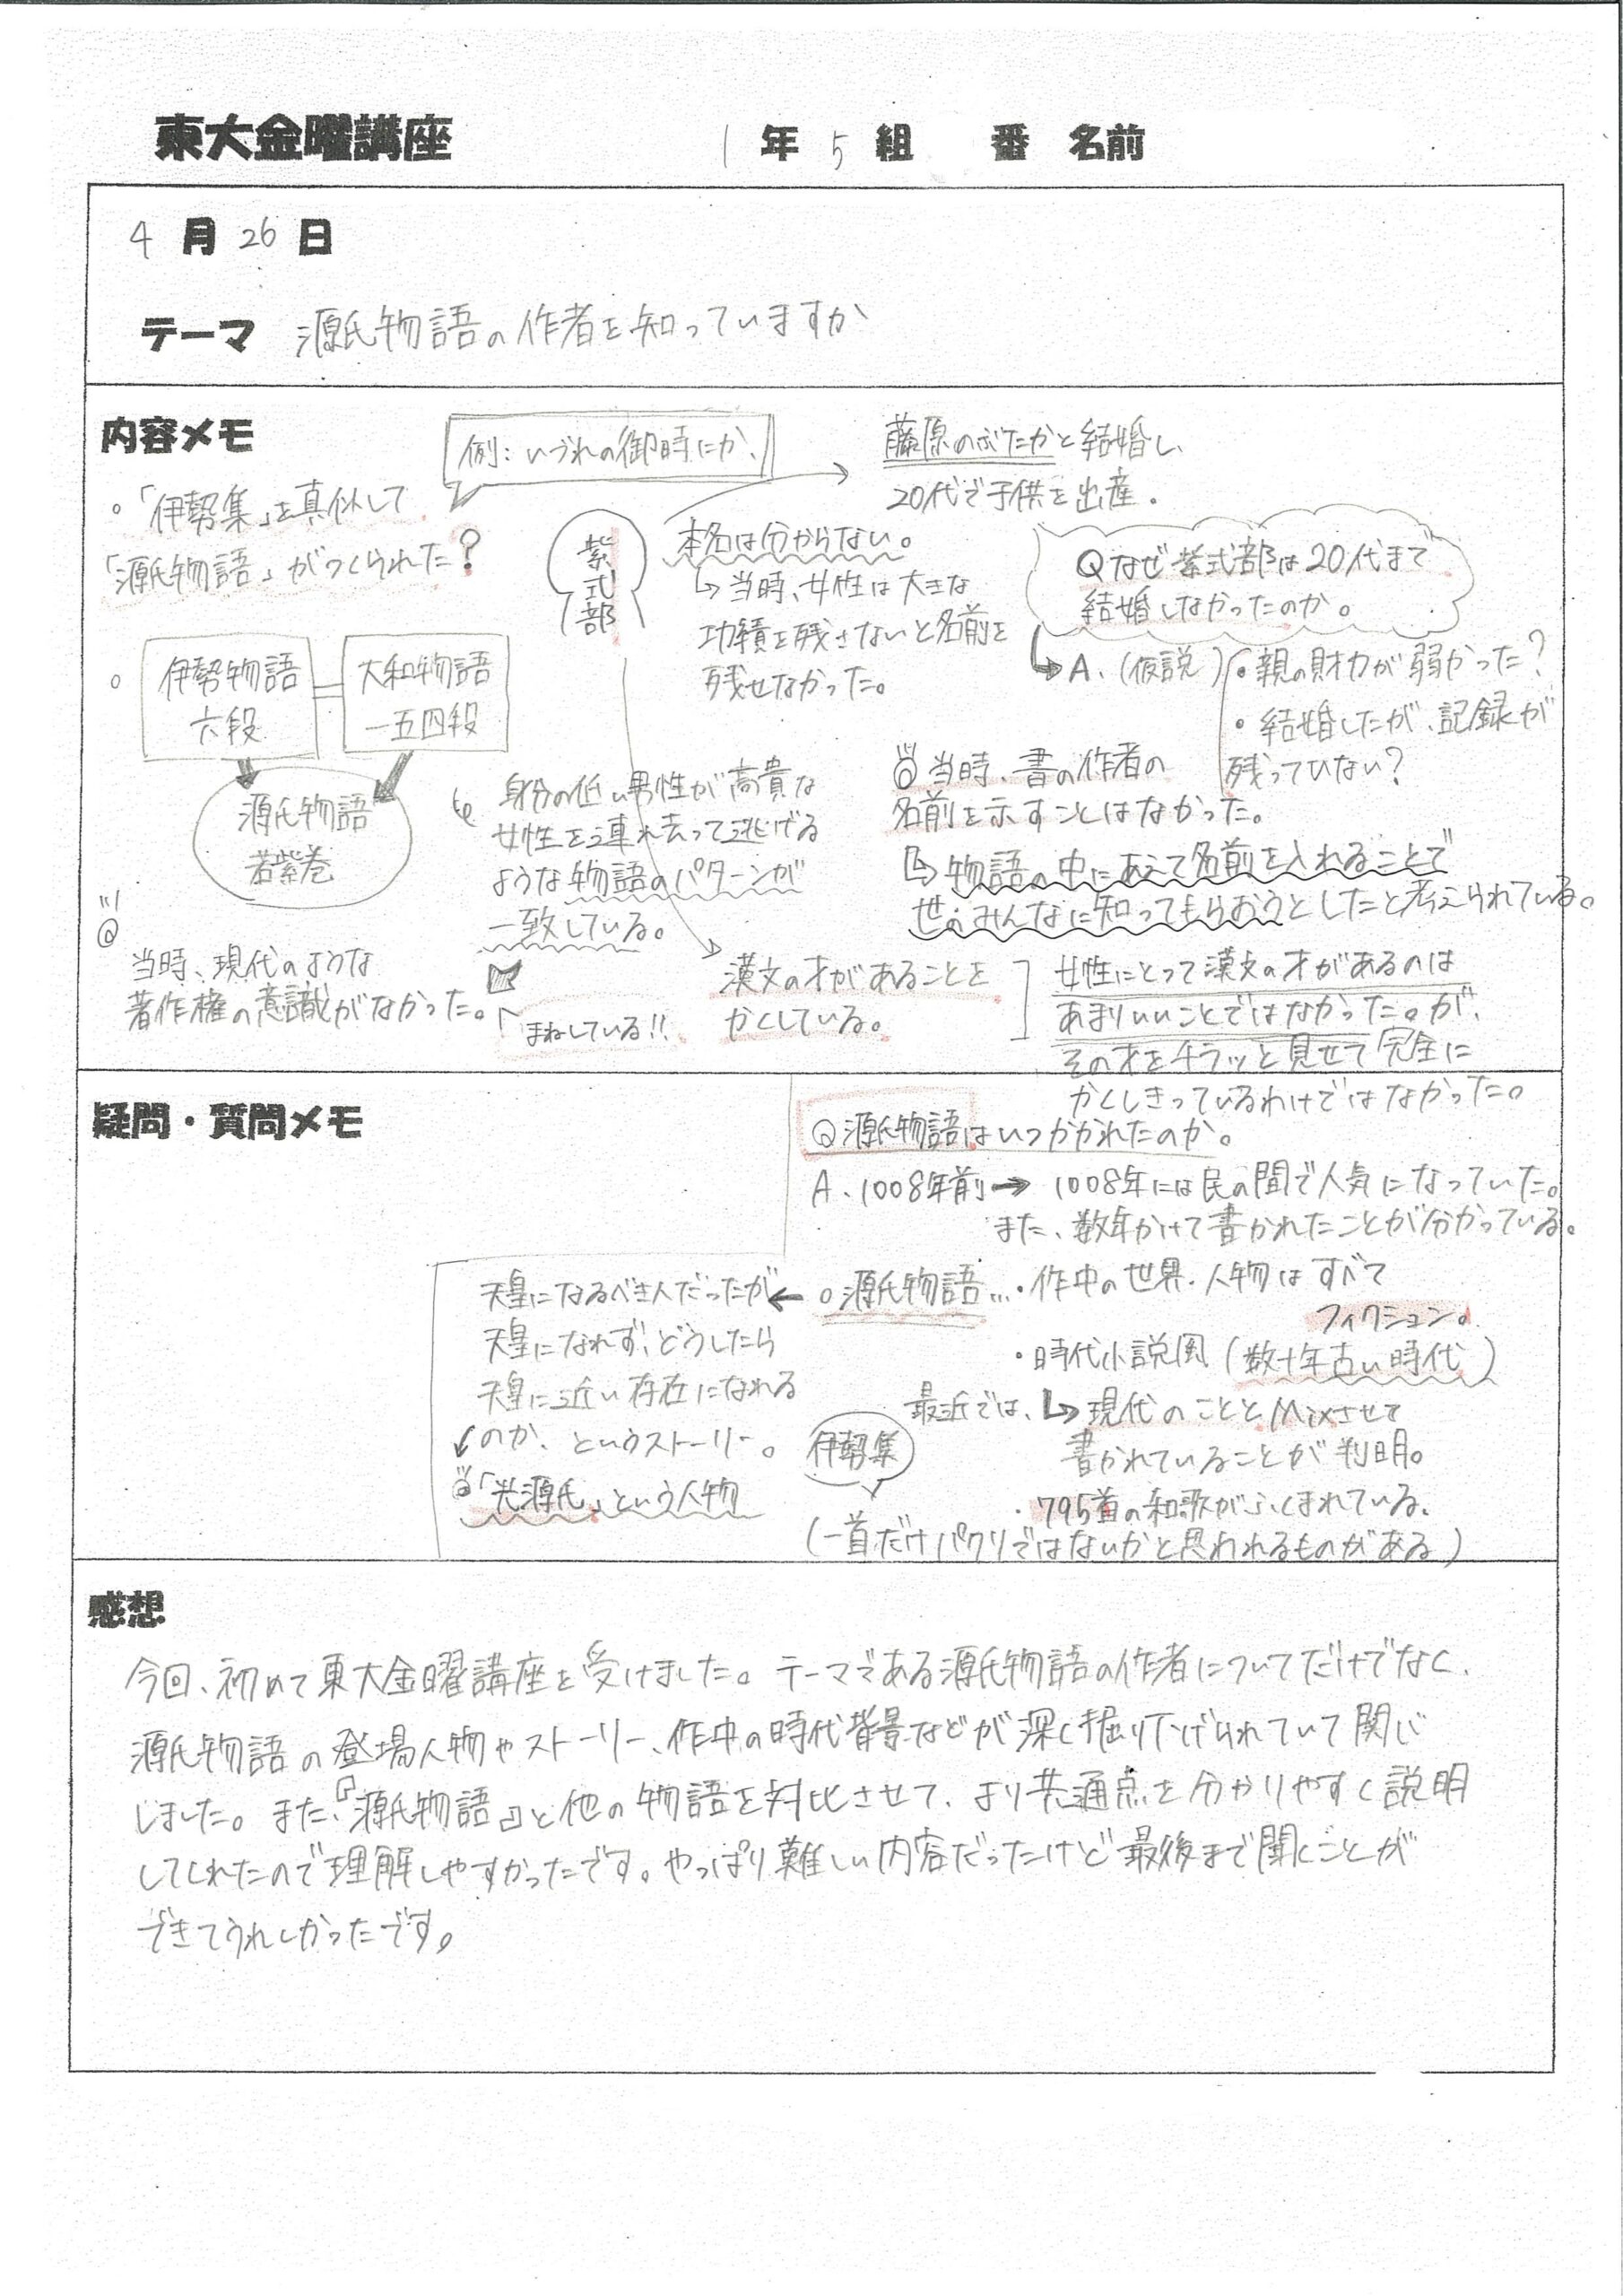 東大金曜講座
1年5組 番 名前
4月26日
テーマ 源氏物語の作者を知っていますか
内容メモ
例:いづれの御時にか、
・「伊勢集」を真似して
「源氏物語」がつくられた?
伊勢物語
六段
=
大和物語
一五四段
源氏物語
若紫巻
身分の低い男性が高貴な
女性を連れ去って逃げる
ような物語のパターンが
一致している。
「まねしている!!
当時、現代のような
著作権の意識がなかった。
紫式部
藤原のぶたかと結婚し、
20代で子供を出産。
本名は分からない。
↳当時、女性は大きな
功績を残さないと名前を
残せなかった。
Qなぜ紫式部は20代まで
結婚しなかったのか。
↳A.(仮説)・親の財力が弱かった?
・結婚したが、記録が
残っていない?
当時、書の作者の
名前を示すことはなかった。
↳物語の中にあえて名前を入れることで
世のみんなに知ってもらおうとしたと考えられている。
漢文の才があることを
かくしている。
女性にとって漢文の才があるのは
あまりいいことではなかった。が、
その才をチラッと見せて完全に
かくしきっているわけではなかった。
疑問・質問メモ
Q源氏物語はいつかかれたのか。
A.1008年前→1008年には民の間で人気になっていた。
また、数年かけて書かれたことが分かっている。
○源氏物語…・作中の世界・人物はすべて
フィクション。
・時代小説風(数十年古い時代)
最近では、↳現代のこととMixさせて
書かれていることが判明。
・795首の和歌がふくまれている、
伊勢集
(一首だけパクリではないかと思われるものがある)
天皇になるべき人だったが←
天皇になれず、どうしたら
天皇に近い存在になれる
のか、というストーリー。
「光源氏」という人物
感想
今回、初めて東大金曜講座を受けました。テーマである源氏物語の作者についてだけでなく、
源氏物語の登場人物やストーリー、作中の時代背景などが深く掘り下げられていて関心
しました。また、『源氏物語』と他の物語を対比させて、より共通点を分かりやすく説明
してくれたので理解しやすかったです。やっぱり難しい内容だったけど最後まで聞くことが
できてうれしかったです。